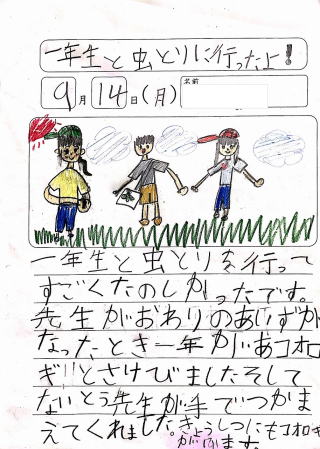 一年生と虫とりに行ったよ!
9月14日(月)
名前
一年生と虫とりを行って
すごくたのしかったです。
先生がおわりのあいずが
なったとき一年があコオロ
ギ!!とさけびましたそして
ないとう先生が手でつかま
えてくれました。きょうしつにもコオロギ
がいます。